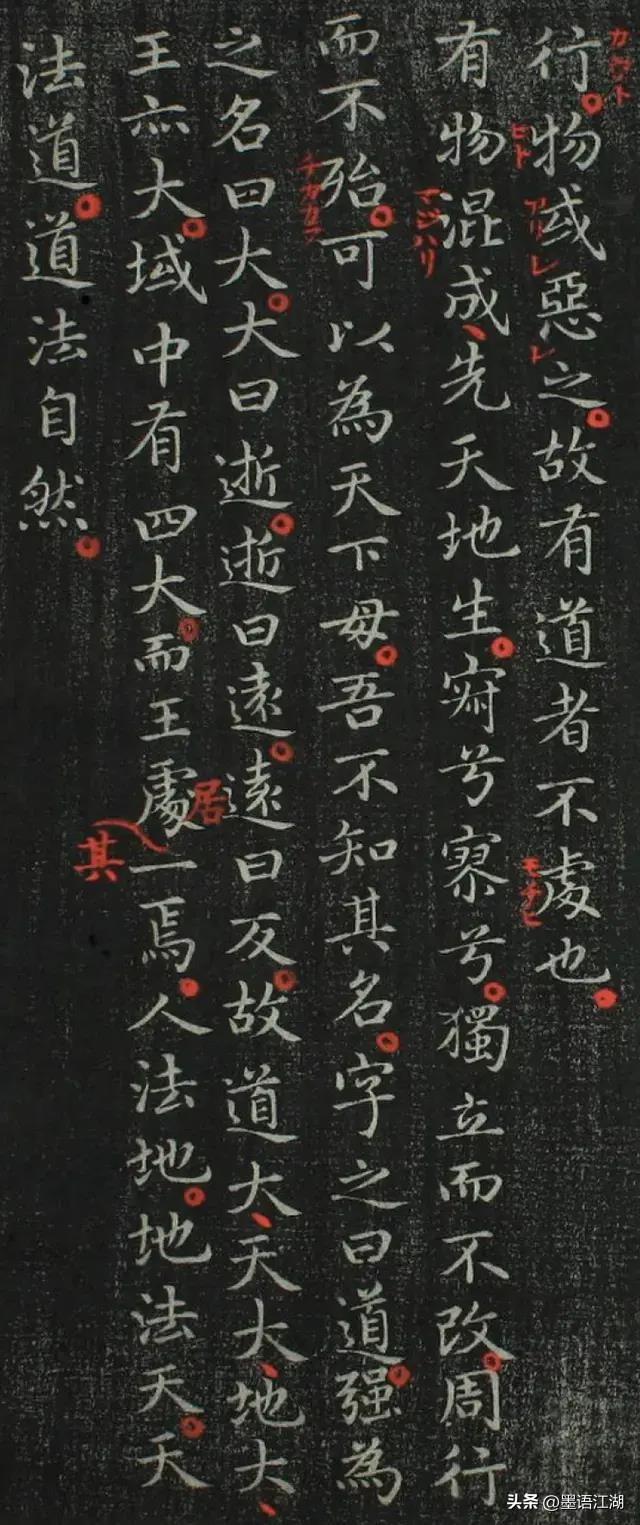 行物或惡之故有道者不處也
有物混成先天地生寂兮寥兮獨立而不改周行
而不殆可以為天下母吾不知其名字之曰道强為
之名曰大大曰逝逝曰遠遠曰反故道大天大地大
王亦大域中有四大而王處一焉人法地地法天天
法道道法自然
カクノト
ヒト
アリレ
レ
モチヒ
マジハリ
チカカラ
居
其
头条 @墨语江湖